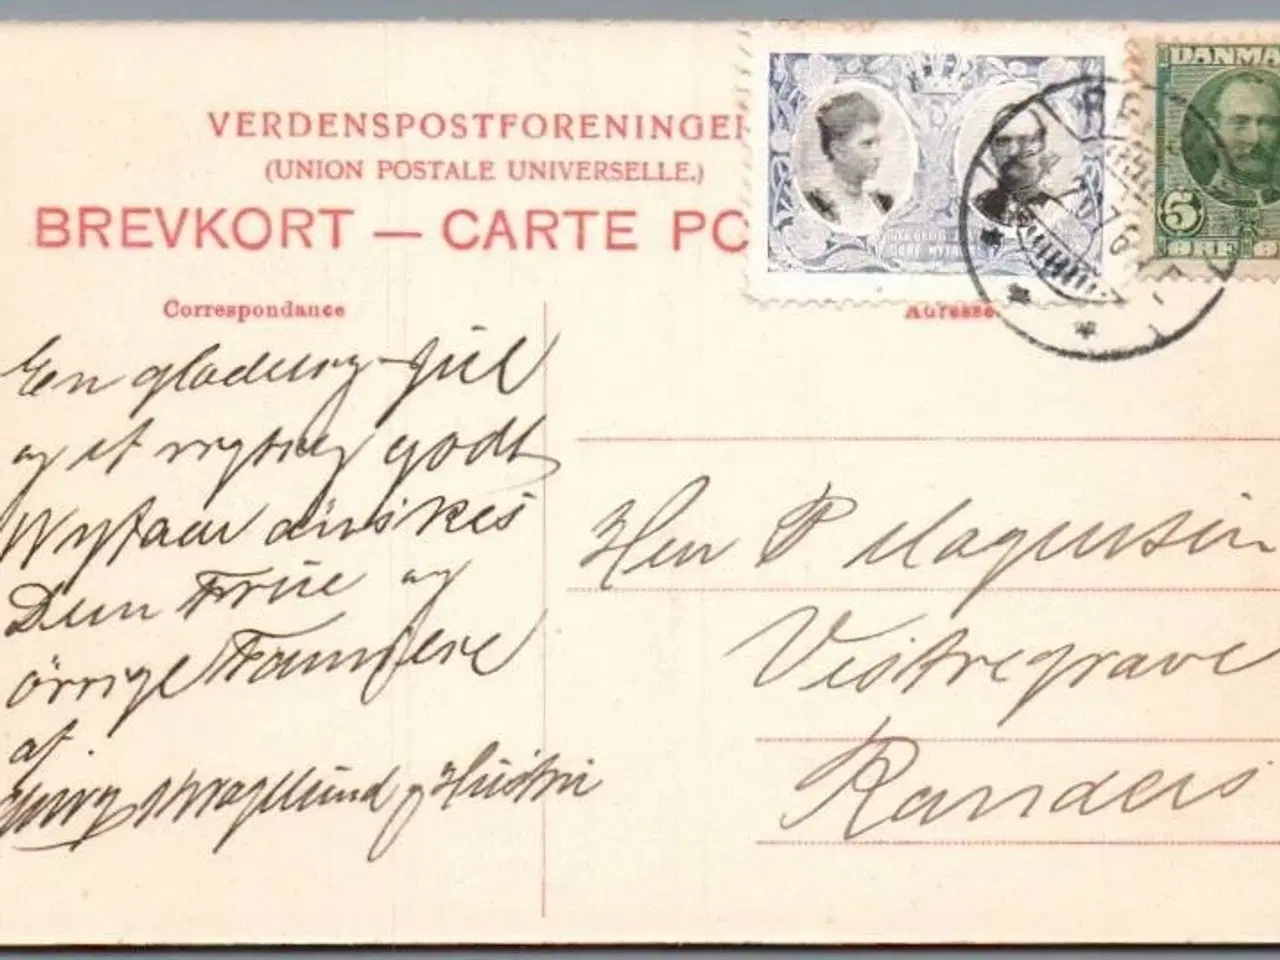 VERDENSPOSTFORENINGE
(UNION POSTALE UNIVERSELLE.)
BREVKORT — CARTE PO
DANMA
5
ØRE
Correspondance
Adresse
En glædelig Juel
og et rigtig godt
Nytaar ønskes
Dem Frue og
örrige Familie
af
Hustru
Herr P Magensen
Vestregrave
Randers